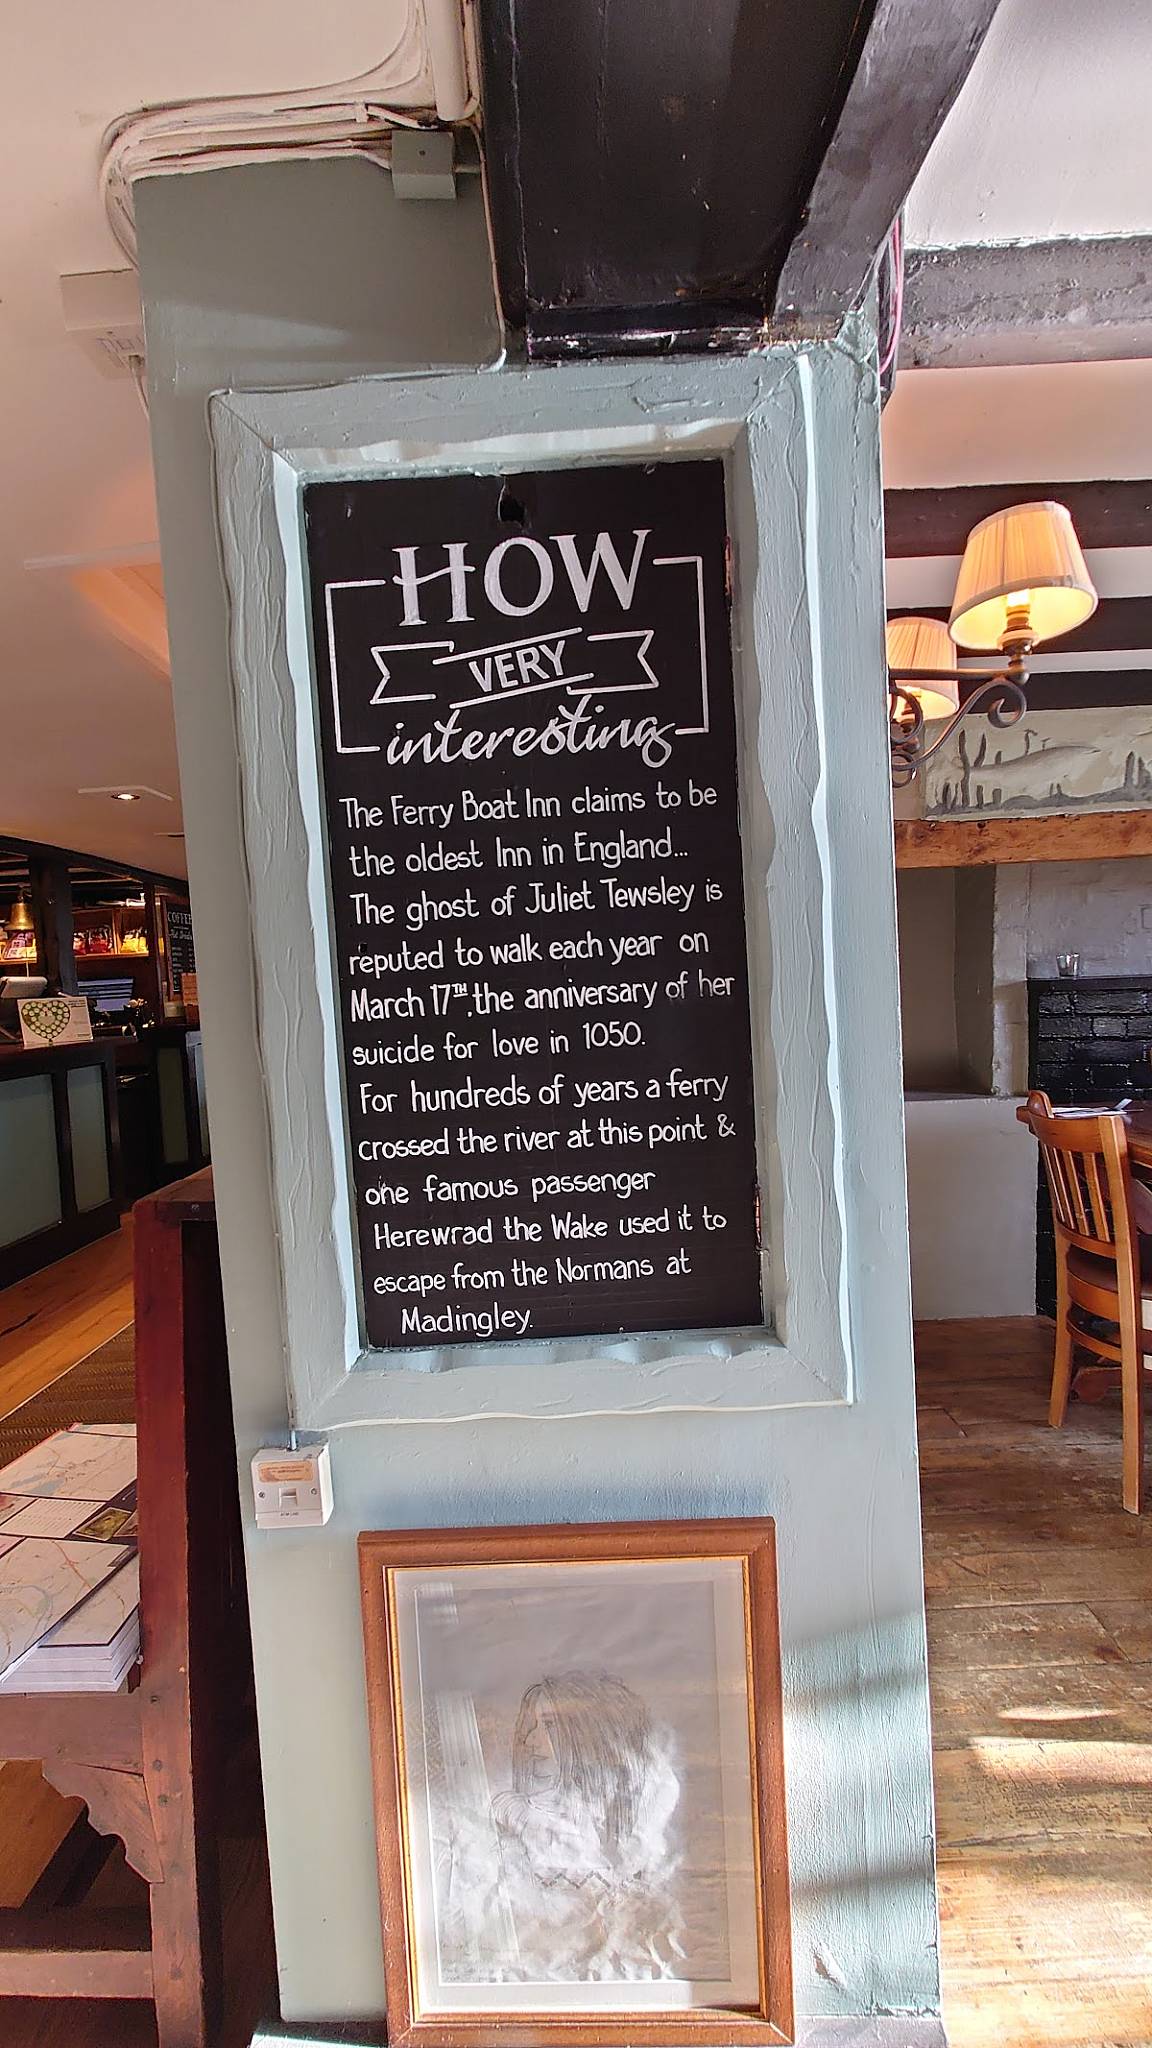 HOW
VERY
interesting
The Ferry Boat Inn claims to be
the oldest Inn in England...
The ghost of Juliet Tewsley is
reputed to walk each year on
March 17TH, the anniversary of her
suicide for love in 1050.
For hundreds of years a ferry
crossed the river at this point &
one famous passenger
Herewrad the Wake used it to
escape from the Normans at
Madingley.
COFFEE